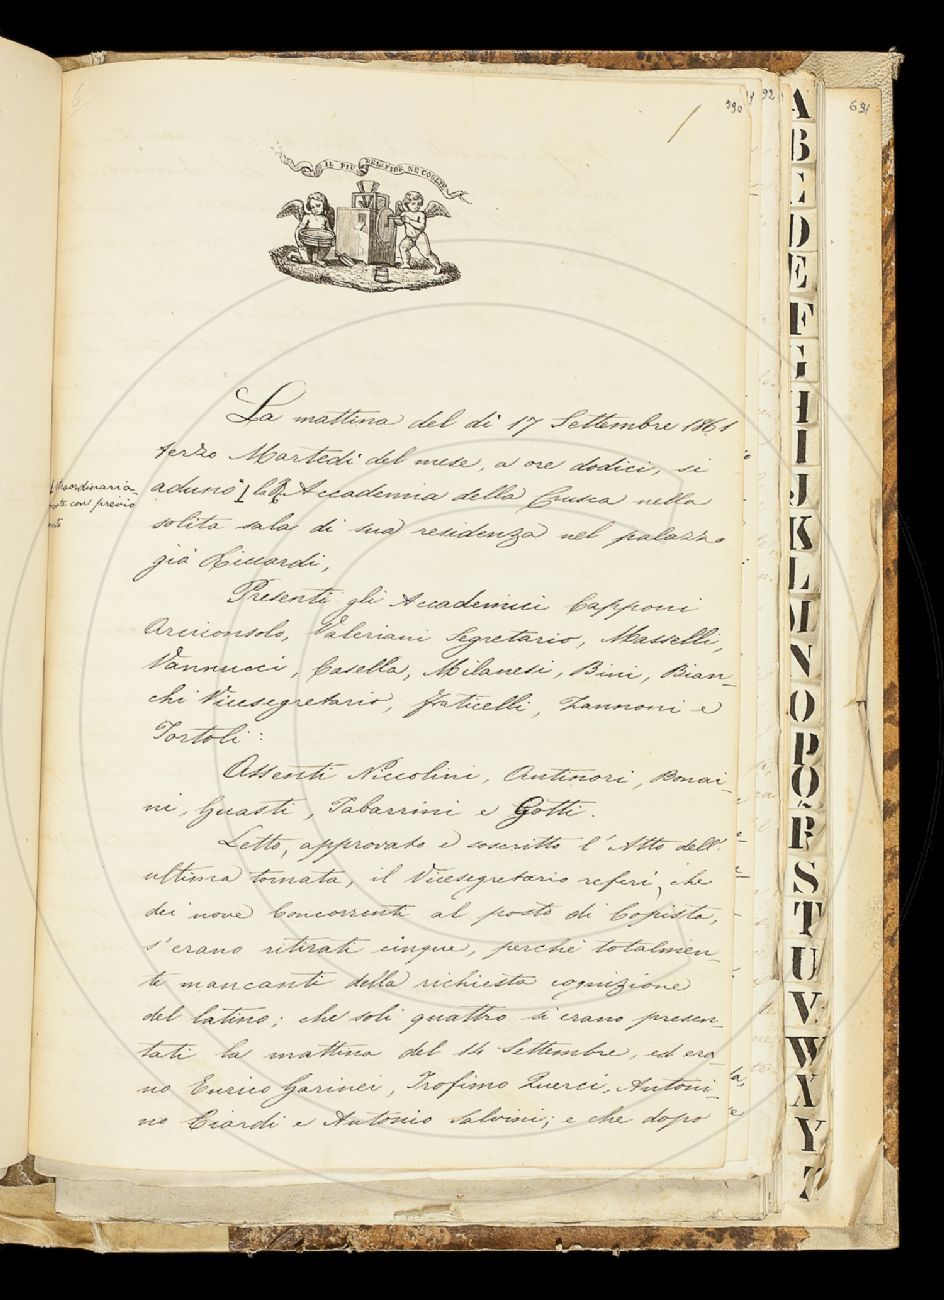 590
92
691
IL PIÙ BEL FIOR NE COGLIE
La mattina del dì 17 Settembre 1861
terzo Martedì del mese, a ore dodici, si
adunò la R. Accademia della Crusca nella
straordinaria-
te con previo
solita sala di sua residenza nel palazzo
già Riccardi,
Presenti gli Accademici Capponi
Arciconsolo, Valeriani Segretario, Masselli,
Vannucci, Casella, Milanesi, Bini, Bian-
chi Vicesegretario, Fraticelli, Zannoni e
Tortoli:
Assenti Niccolini, Antinori, Bonai-
ni, Guasti, Tabarrini e Gotti.
Letto, approvato e soscritto l'Atto dell'
ultima tornata, il Vicesegretario referì, che
dei nove Concorrenti al posto di Copista,
s'erano ritirati cinque, perché totalmen-
te mancanti della richiesta cognizione
del latino; che soli quattro s'erano presen-
tati la mattina del 14 Settembre, ed era
no Enrico Garinei, Trofimo Querci, Antoni-
no Ciardi e Antonio Salvini; e che dopo
A
B
C
D
E
F
G
H
I
J
K
L
M
N
O
P
Q
R
S
T
U
V
W
X
Y
Z